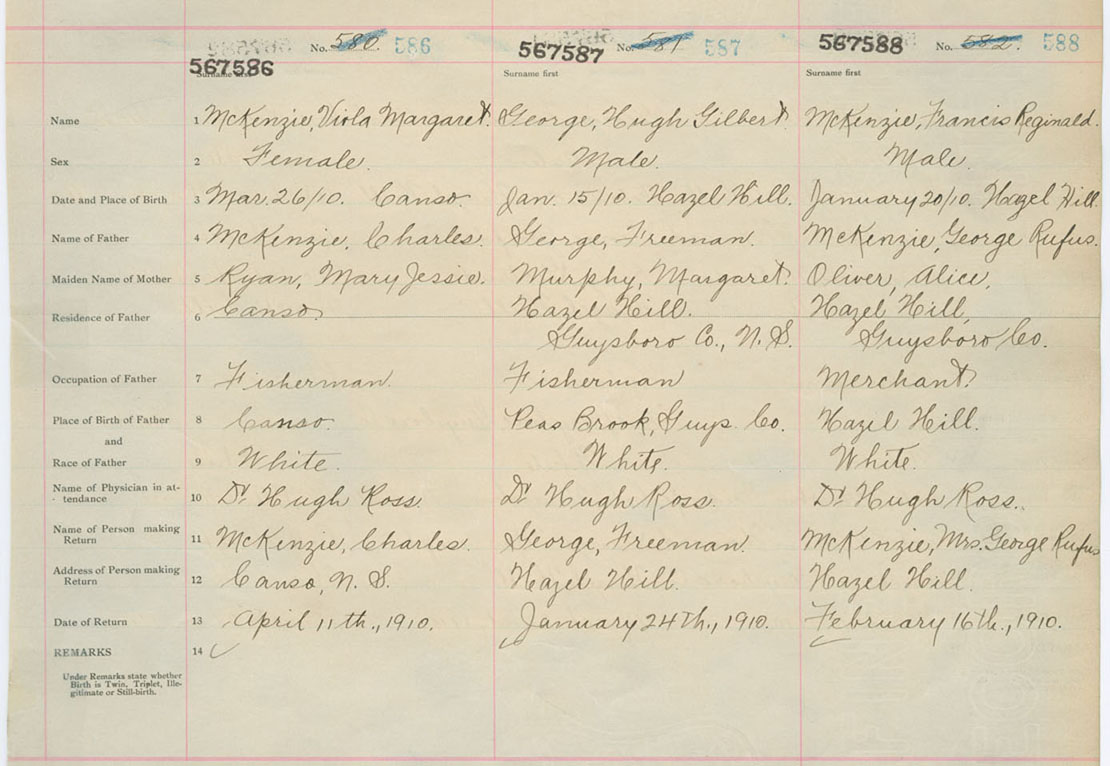 No. 580. 586 No. 581 587 No. 582. 588
567586 567587 567588
Surname first Surname first Surname first
Name 1 McKenzie, Viola Margaret. George, Hugh Gilbert. McKenzie, Francis Reginald.
Sex 2 Female. Male. Male.
Date and Place of Birth 3 Mar. 26/10. Canso. Jan. 15/10. Hazel Hill. January 20/10. Hazel Hill.
Name of Father 4 McKenzie, Charles. George, Freeman. McKenzie, George Rufus.
Maiden Name of Mother 5 Ryan, Mary Jessie. Murphy, Margaret. Oliver, Alice,
Residence of Father 6 Canso. Hazel Hill. Hazel Hill,
Guysboro Co., N. S. Guysboro Co.
Occupation of Father 7 Fisherman. Fisherman Merchant.
Place of Birth of Father 8 Canso. Peas Brook, Guys. Co. Hazel Hill.
and
Race of Father 9 White. White. White.
Name of Physician in at-
tendance 10 Dr Hugh Ross. Dr Hugh Ross. Dr Hugh Ross.
Name of Person making
Return 11 McKenzie, Charles. George, Freeman. McKenzie, Mrs. George Rufus
Address of Person making
Return 12 Canso, N. S. Hazel Hill. Hazel Hill.
Date of Return 13 April 11th., 1910. January 24th., 1910. February 16th., 1910.
REMARKS 14
Under Remarks state whether
Birth is Twin, Triplet, Ille-
gitimate or Still-birth.